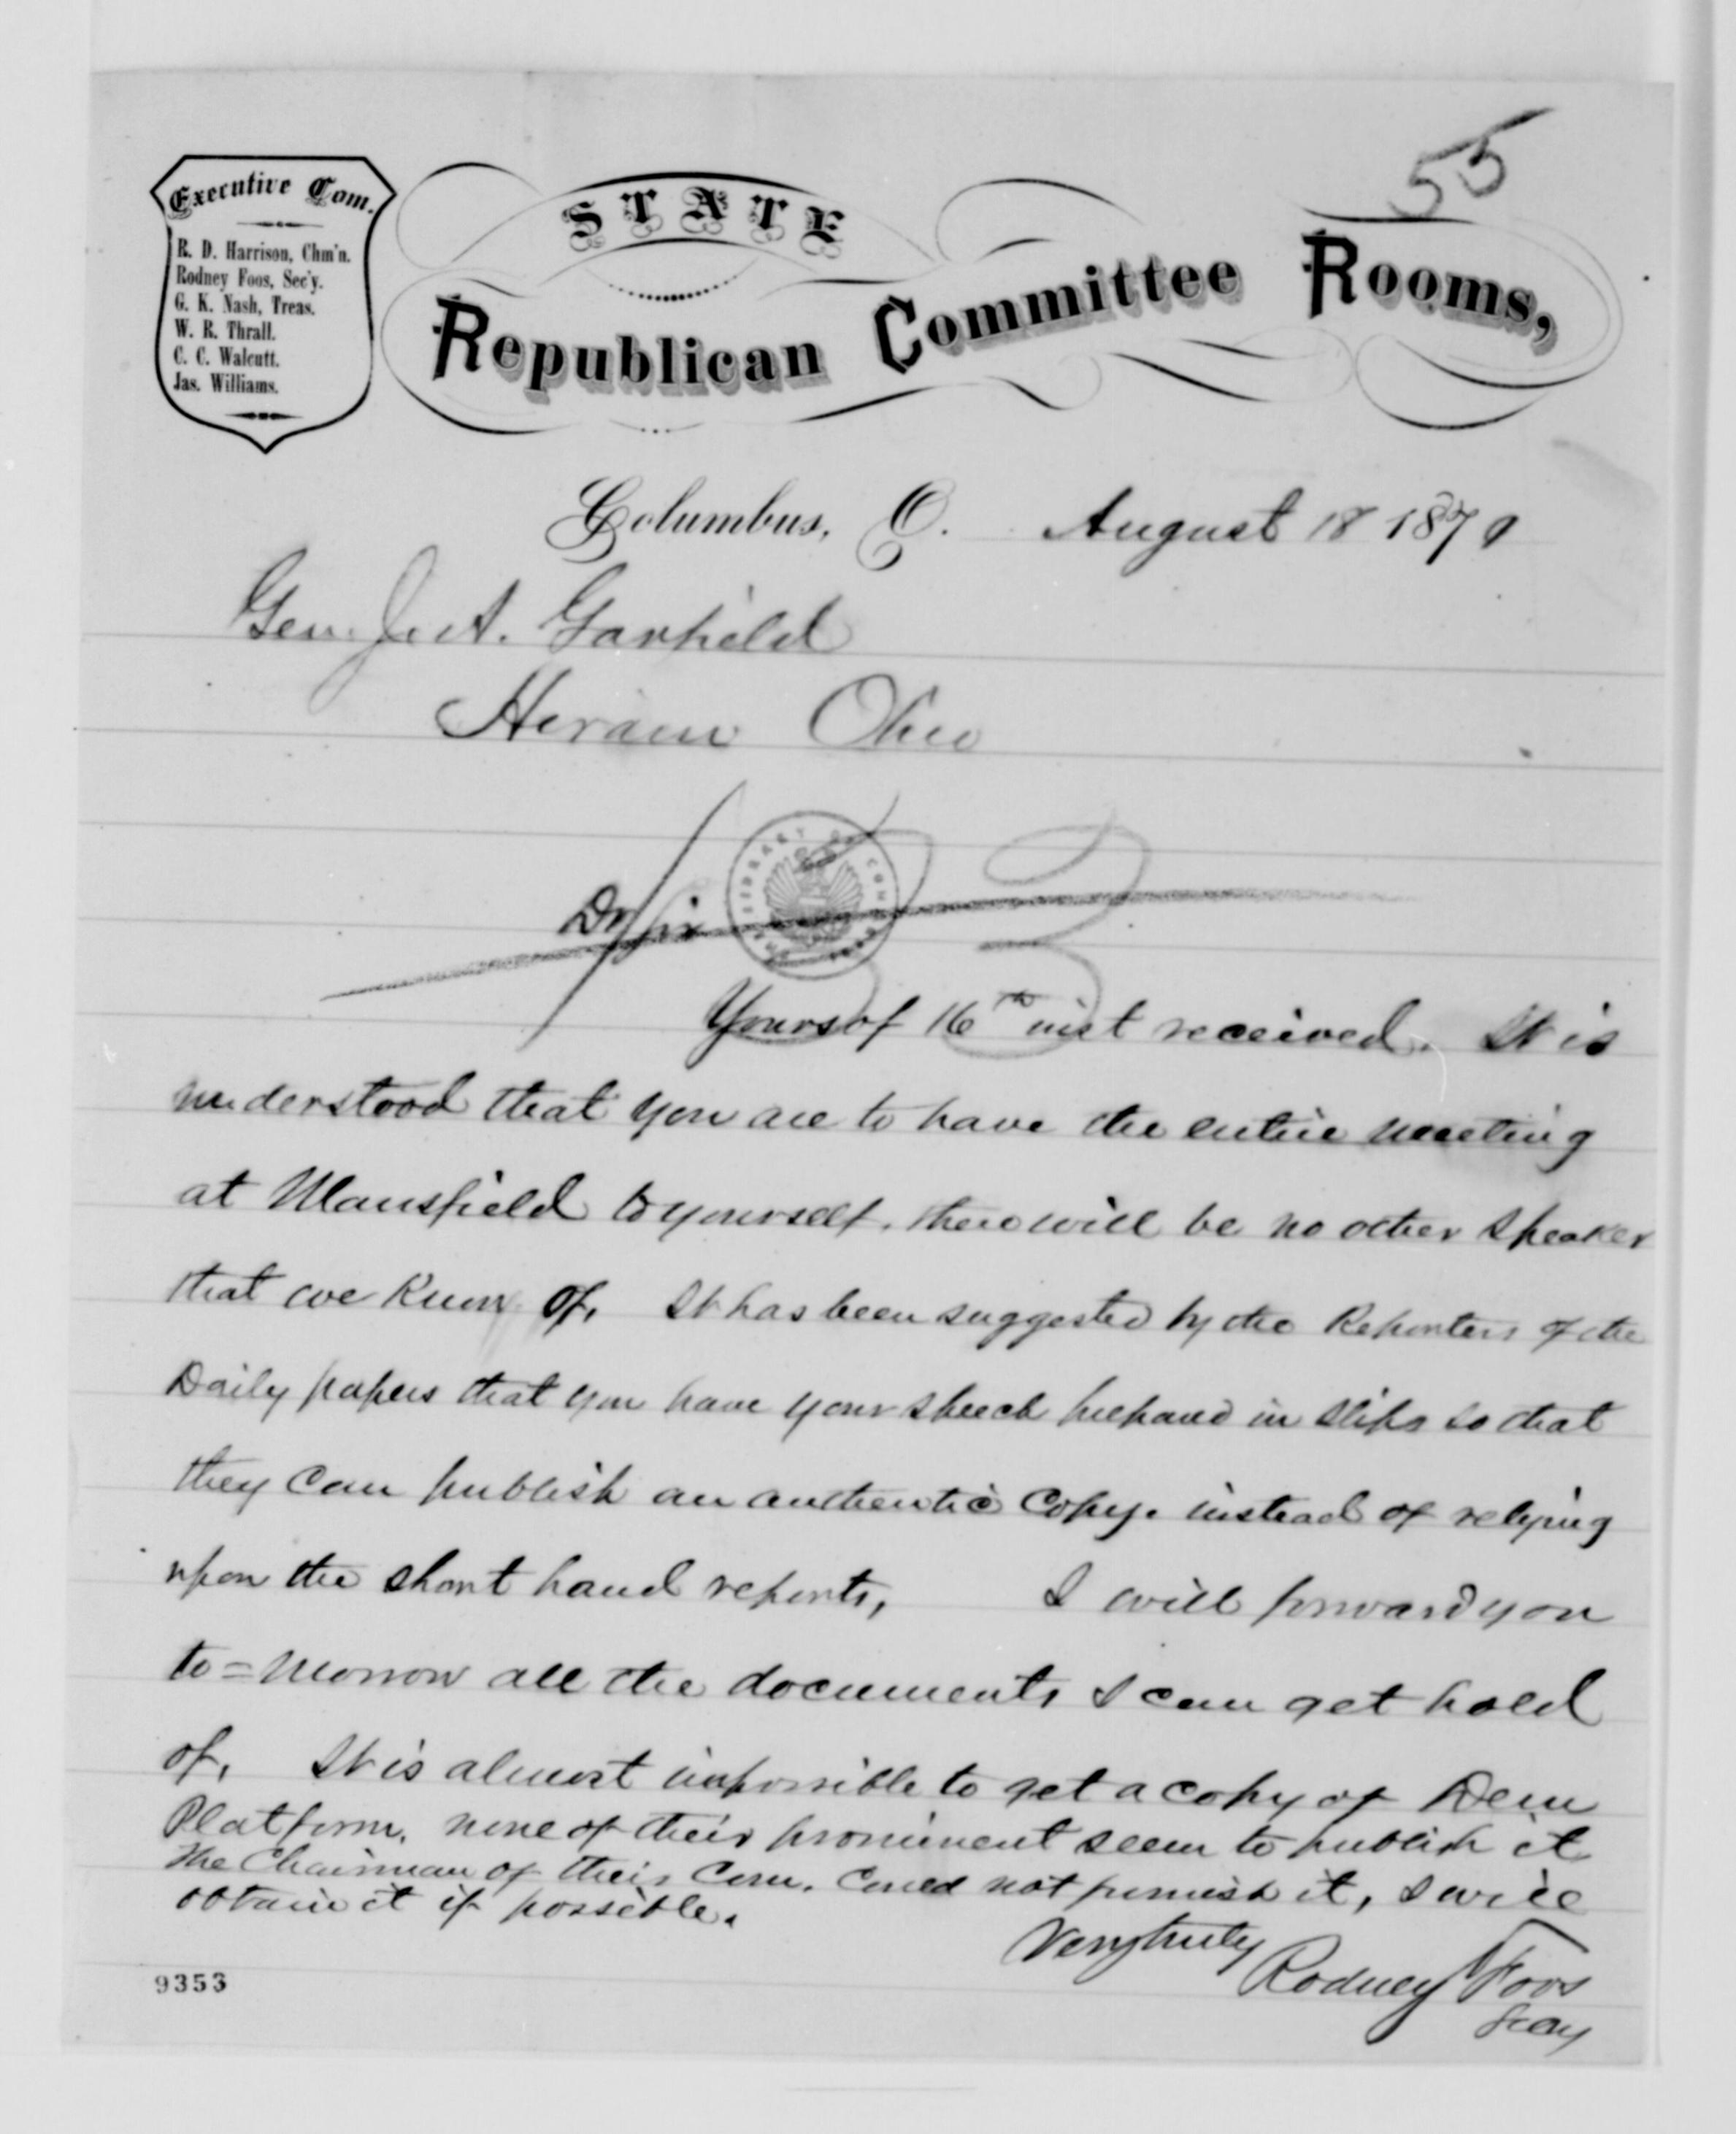 55
Executive Com.
R. D. Harrison, Chm'n.
Rodney Foos, Sec'y.
G. K. Nash, Treas.
W. R. Thrall.
C. C. Walcutt.
Jas. Williams.
STATE
Republican Committee Rooms,
Columbus, O. August 18 1870
Gen. J. A. Garfield
Hiram Ohio
Dr Sir
Yours of 16th inst received. It is
understood that you are to have the entire meeting
at Mansfield to yourself. there will be no other speaker
that we know of. It has been suggested by the Reporters of the
Daily papers that you have your speech prepared in slips so that
they can publish an authentic Copy. instead of relying
upon the short hand reports, I will forward you
to=morrow all the documents I can get hold
of. It is almost impossible to get a copy of Dem
Platform. none of their prominent seem to publish it
The Chairman of their Com. could not furnish it, I will
obtain it if possible.
Very truly
Rodney Foos
Secy
9353